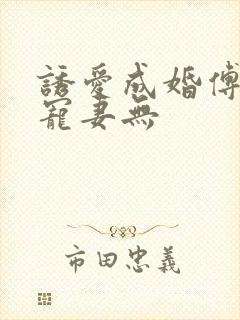 誘愛成婚傅
寵妻無
市田忠義